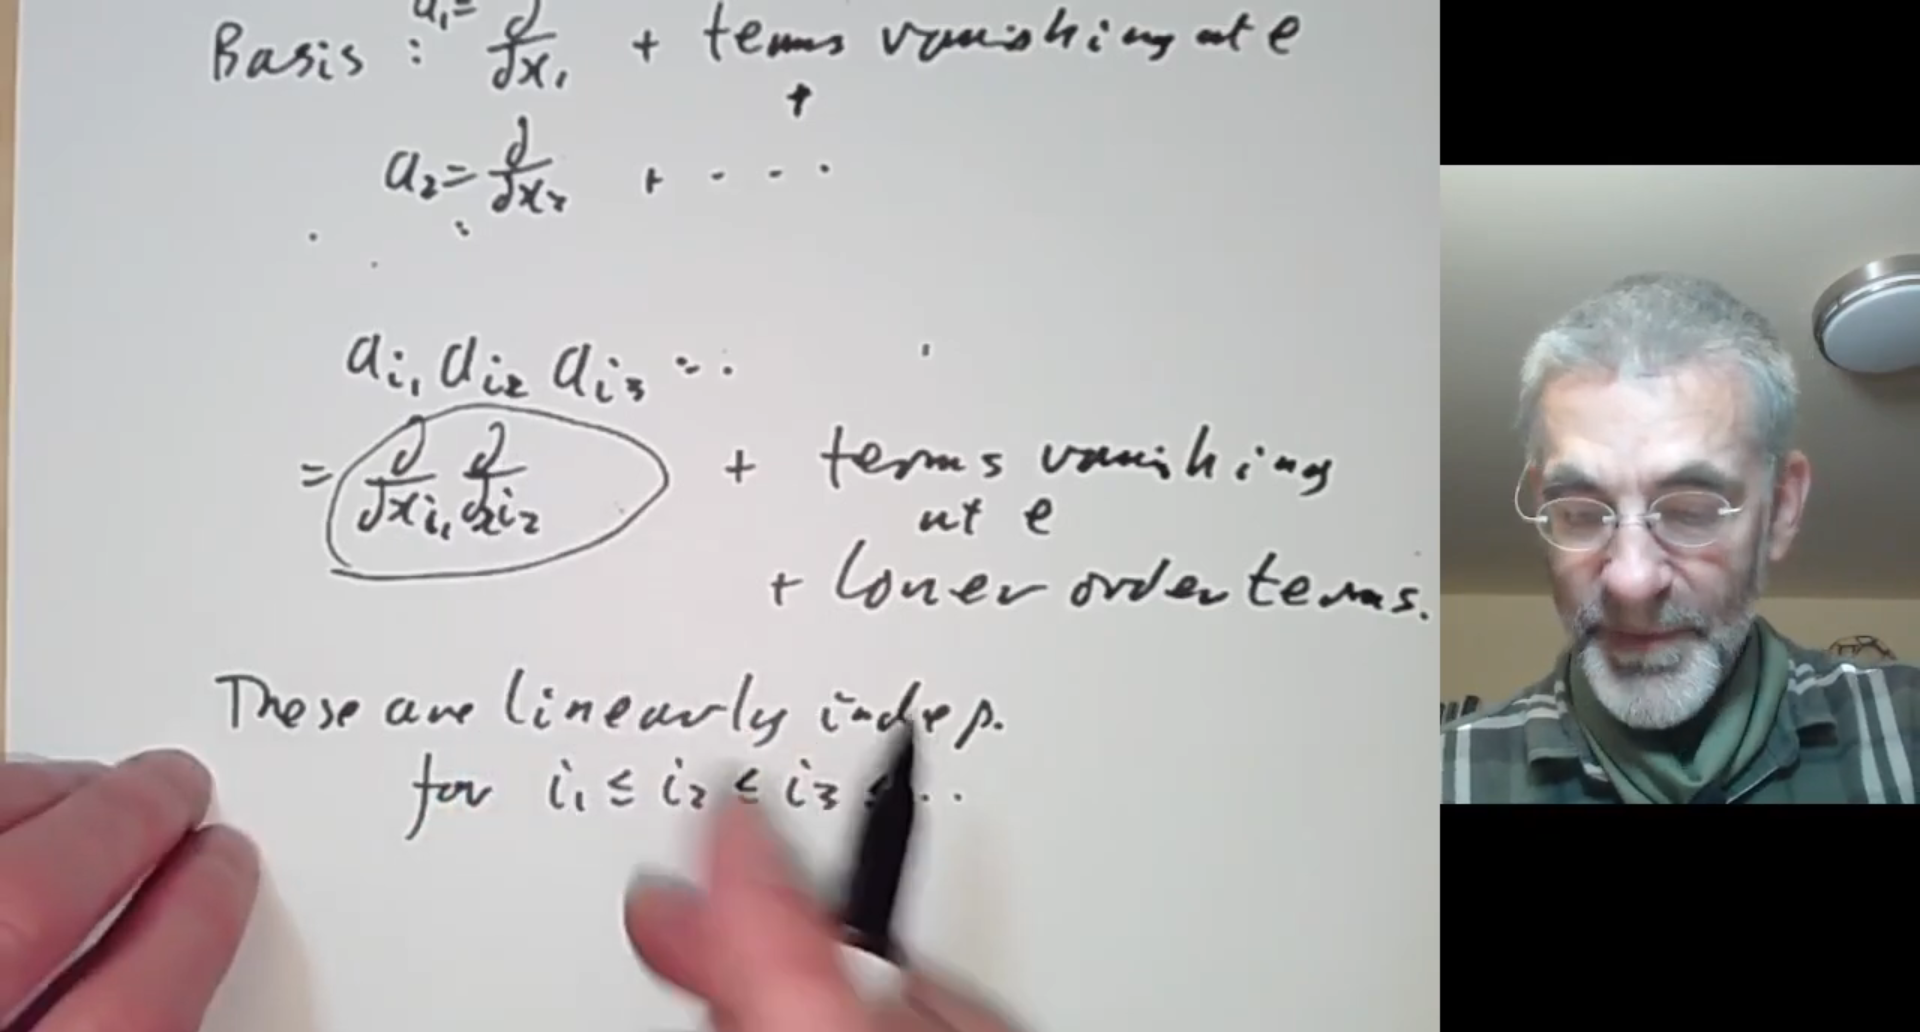 Basis : a₁= ∂/∂x₁ + terms vanishing at e
+
a₂= ∂/∂x₂ + - - ·
:
aᵢ₁ aᵢ₂ aᵢ₃ -..
= ∂/∂xᵢ₁ ∂/∂xᵢ₂ + terms vanishing
at e
+ lower order terms.
These are linearly indep.
for i₁ ≤ i₂ ≤ i₃ ≤ ..